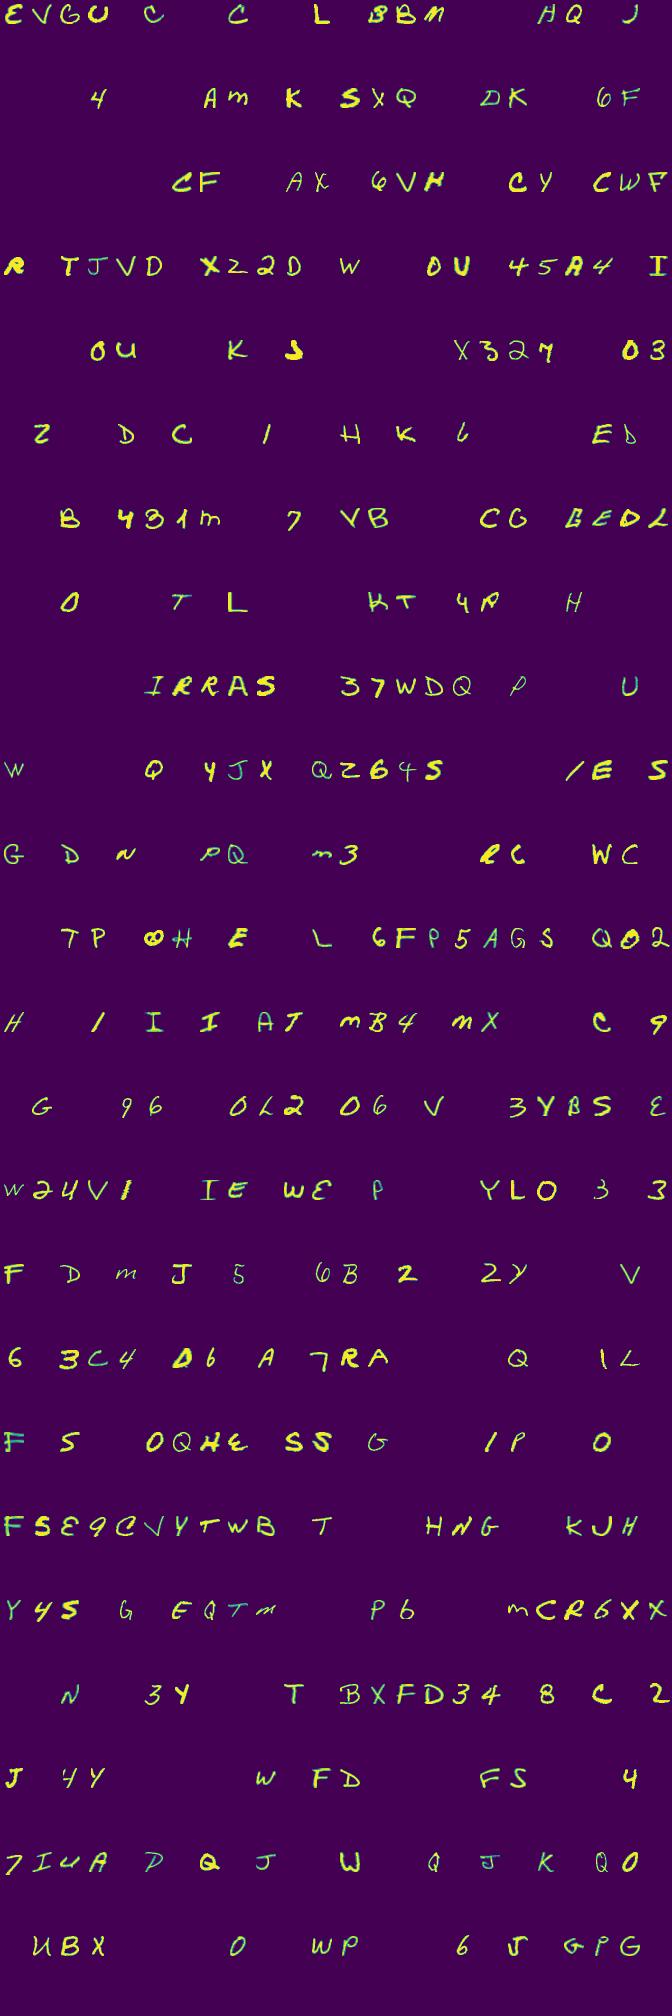 E V G U C C L B B M H Q J
4 A M K S X Q D K 6 F
C F A X 6 V H C Y C W F
R T J V D X Z 2 D W 0 U 4 5 A 4 I
0 U K S X 3 2 7 0 3
Z D C 1 H K 6 E D
B 4 3 1 M 7 V B C G G E D L
0 T L K T 4 R H
I R R A S 3 7 W D Q P U
W Q Y J X Q Z 6 4 S 1 E S
G D N P Q M 3 R C W C
T P 8 H E L 6 F P 5 A G S Q 0 2
H 1 I I A T M B 4 M X C 9
G 9 6 0 L 2 0 6 V 3 Y B S E
W 2 4 V 1 I E W E P Y L O 3 3
F D M J 5 6 B 2 2 Y V
6 3 C 4 D 6 A 7 R A Q 1 L
F S 0 Q H E S S G 1 P 0
F S E 9 C V Y T W B T H N G K U H
Y 4 S G E Q T M P 6 M C R 6 X X
N 3 Y T B X F D 3 4 8 C 2
J 4 Y W F D F S 4
7 I U A D Q J W Q J K Q 0
U B X 0 W P 6 J G P G